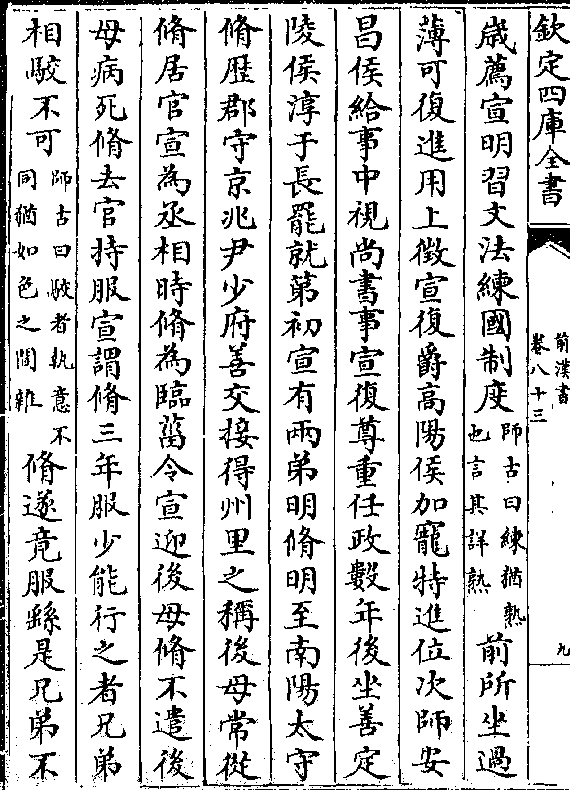 欽定四庫全書
前漢書
卷八十三
九
歳薦宣明習文法練國制度師古曰練猶熟
也言其詳熟前所坐過
薄可復進用上徴宣復爵髙陽侯加寵特進位次師安
昌侯給事中視尚書事宣復尊重任政數年後坐善定
陵侯淳于長罷就第初宣有兩弟明脩明至南陽太守
脩歴郡守京兆尹少府善交接得州里之稱後母常從
脩居官宣為丞相時脩為臨菑令宣迎後母脩不遣後
母病死脩去官持服宣謂脩三年服少能行之者兄弟
相駮不可師古曰駮者執意不
同猶如色之間雜脩遂竟服繇是兄弟不